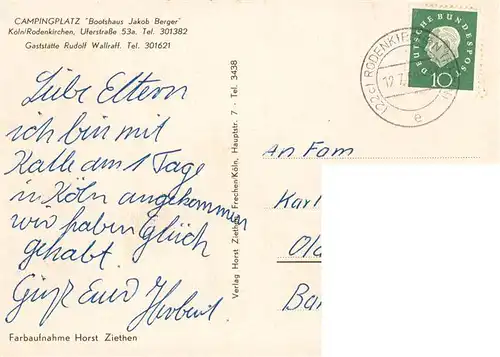 CAMPINGPLATZ "Bootshaus Jakob Berger"
Köln/Rodenkirchen, Uferstraße 53a. Tel. 301382
Gaststätte Rudolf Wallraff. Tel. 301621
Liebe Eltern
ich bin mit
Kalle am 1 Tage
in Köln angekommen
wir haben Glück
gehabt.
Gruß Euer Herbert
Farbaufnahme Horst Ziethen
Verlag Horst Ziethen, Frechen/Köln, Hauptstr. 7 · Tel. 3438
DEUTSCHE BUNDESPOST
10
(22c) RODENKIRCHEN
12.7.
e
An Fam
Karl
Old
Bar